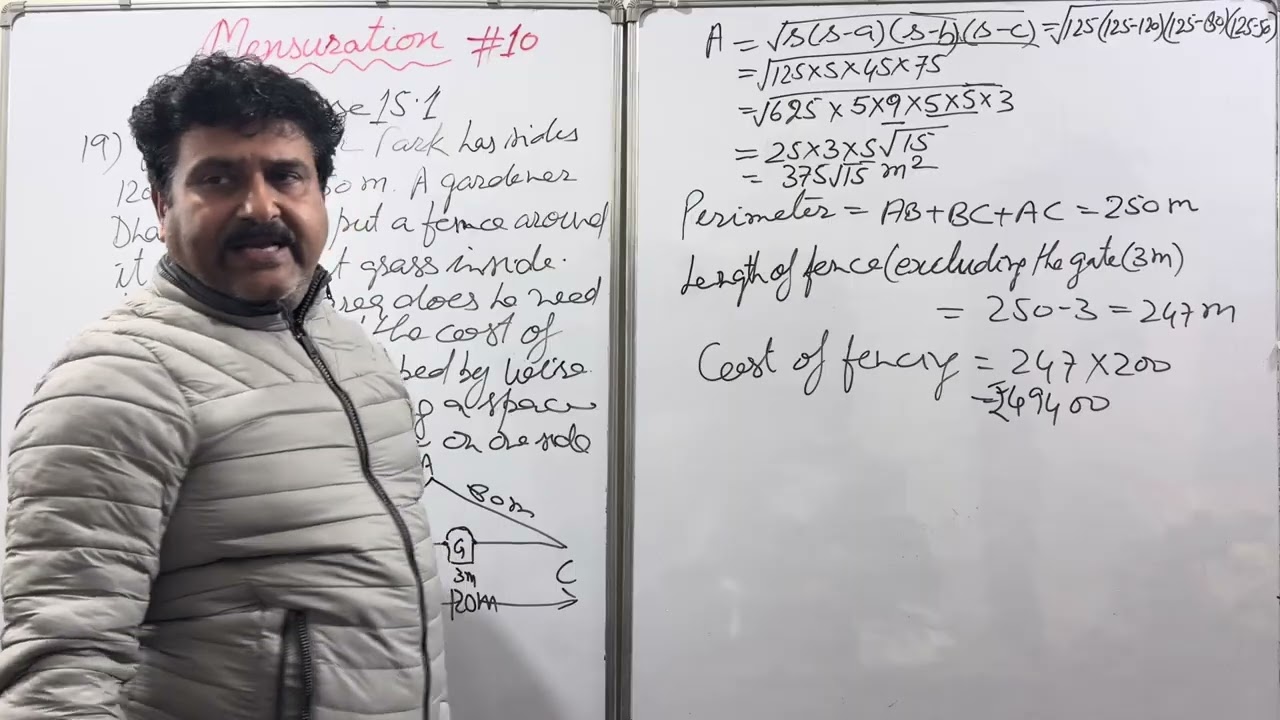 Mensuration #10
15.1
19) Park has sides
120 m. A gardener
Dha put a fence around
it grass inside.
does he need
the cost of
bed by wire
g a space
on one side
A
80m
G
3m
C
120m
A = √s(s-a)(s-b)(s-c) = √125(125-120)(125-80)(125-50)
= √125×5×45×75
= √625 × 5×9×5×5×3
= 25×3×5√15
= 375√15 m²
Perimeter = AB+BC+AC = 250m
Length of fence (excluding the gate (3m)
= 250-3 = 247m
Cost of fencing = 247×200
= ₹49400